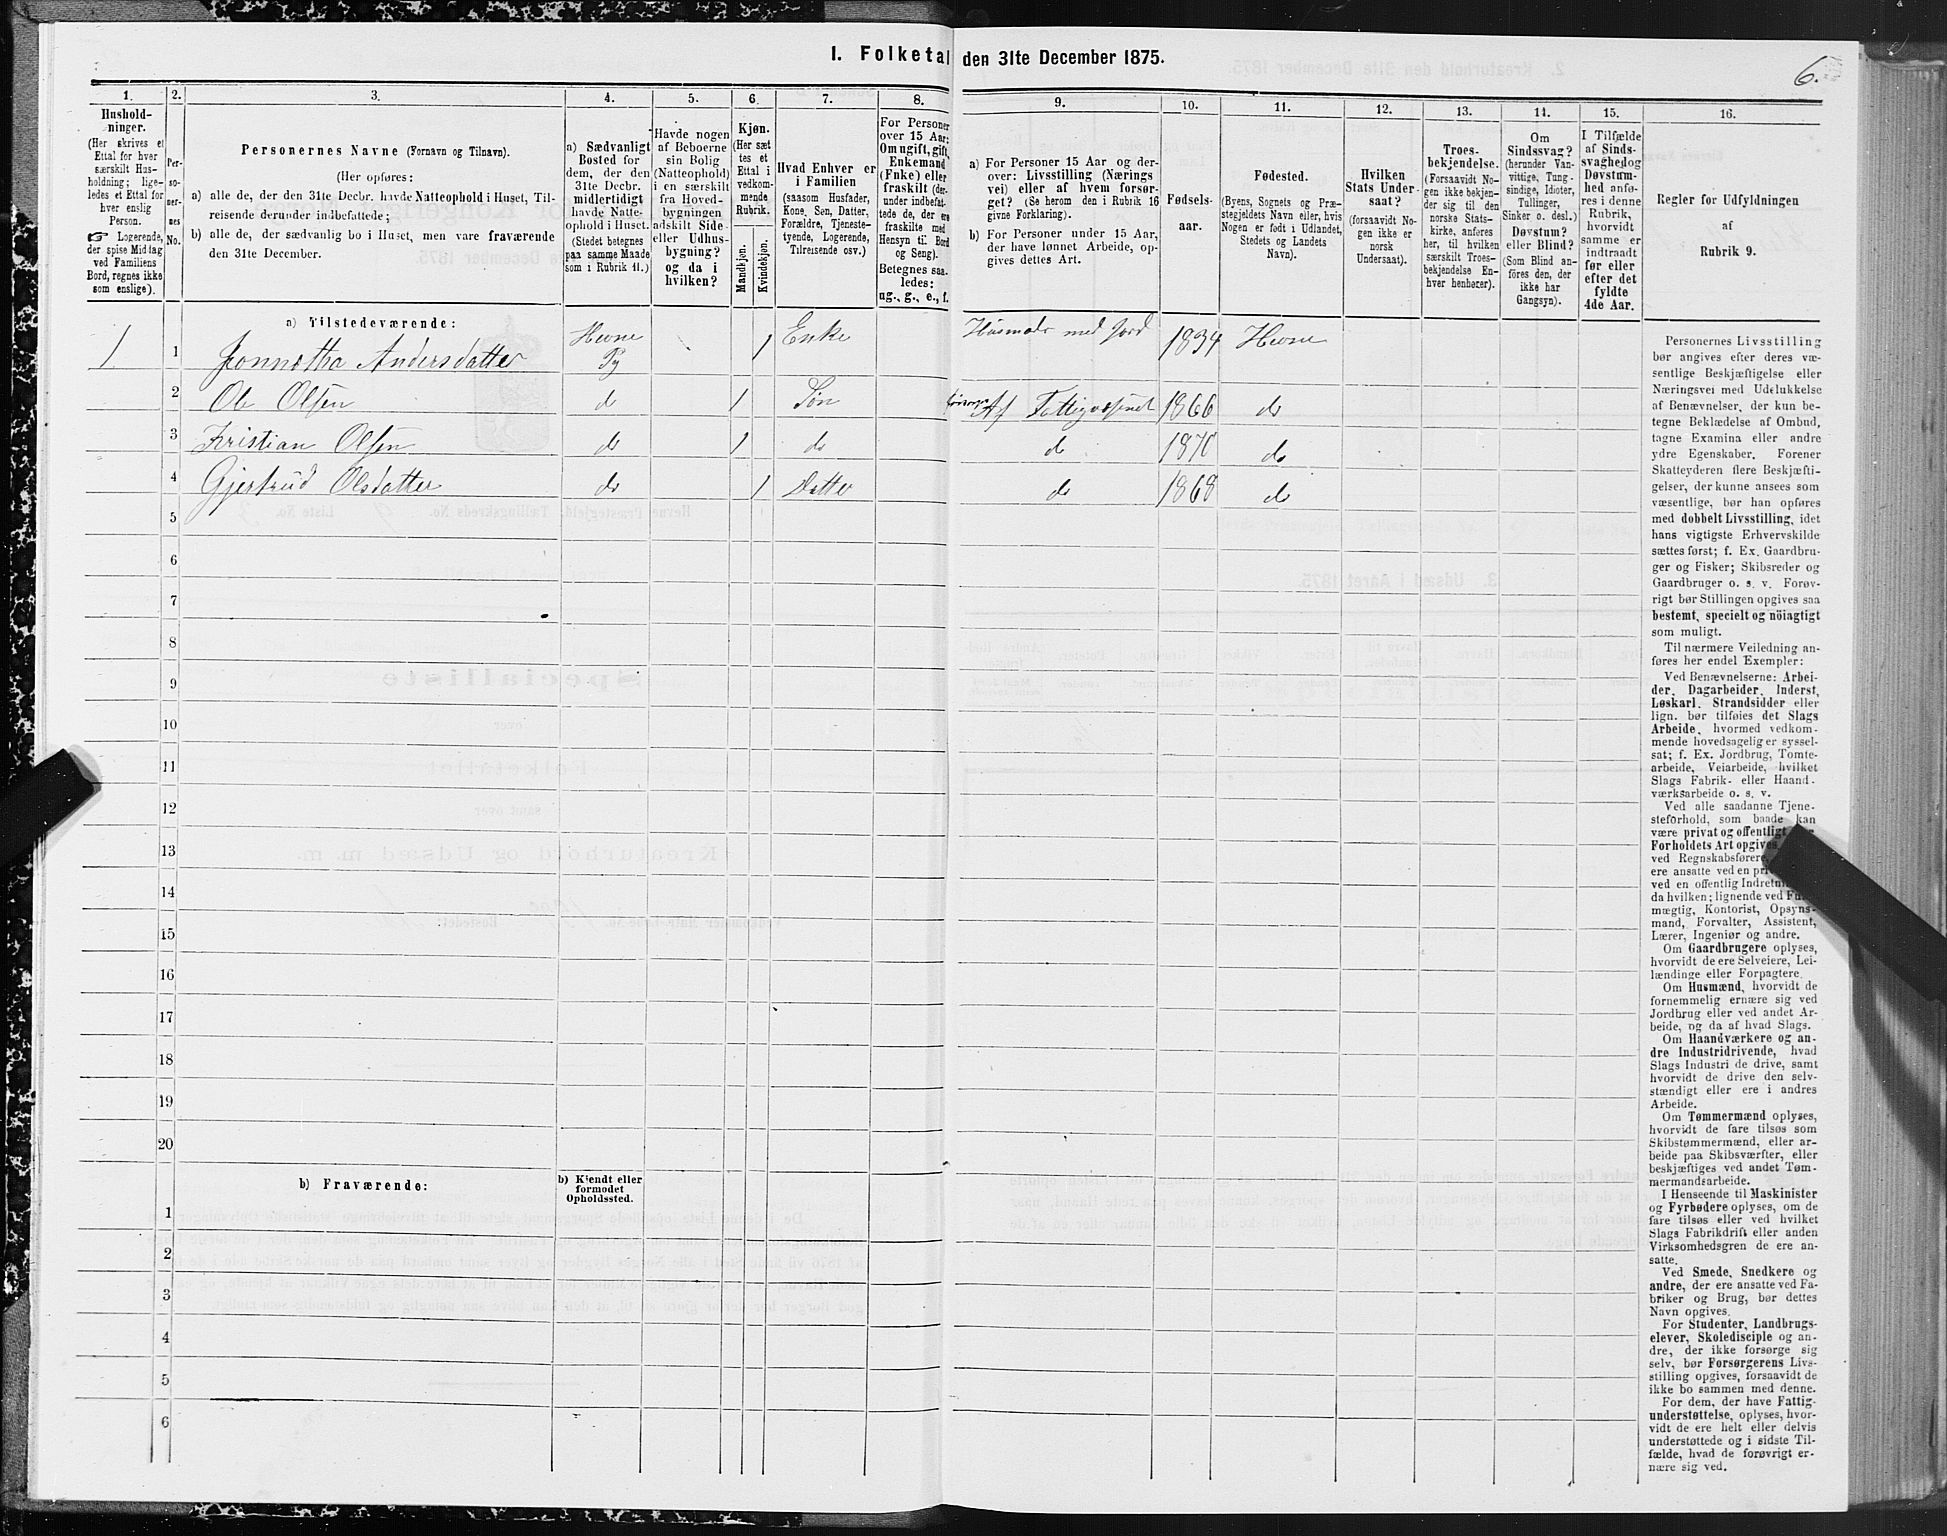 I. Folketal den 31te December 1875.
6.
1.
2.
3.
4.
5.
6.
7.
8.
9.
10.
11.
12.
13.
14.
15.
16.
Hushold-
ninger.
(Her skrives et
Ettal for hver
særskilt Hus-
holdning; lige-
ledes et Ettal for
hver enslig
Person.
☞ Logerende,
der spise Middag
ved Familiens
Bord, regnes ikke
som enslige).
Per-
so-
ner-
nes
No.
Personernes Navne (Fornavn og Tilnavn).
(Her opføres:
a) alle de, der den 31te Decbr. havde Natteophold i Huset, Til-
reisende derunder indbefattede;
b) alle de, der sædvanlig bo i Huset, men vare fraværende
den 31te December.
a) Sædvanligt
Bosted for
dem, der den
31te Decbr.
midlertidigt
havde Natte-
ophold i Huset.
(Stedet betegnes
paa samme Maade
som i Rubrik 11.)
Havde nogen
af Beboerne
sin Bolig
(Natteophold)
i en særskilt
fra Hoved-
bygningen
adskilt Side-
eller Udhus-
bygning?
og da i
hvilken?
Kjøn.
(Her sæt-
tes et
Ettal i
vedkom-
mende
Rubrik.
Mandkjøn.
Kvindekjøn.
Hvad Enhver er
i Familien
(saasom Husfader,
Kone, Søn, Datter,
Forældre, Tjeneste-
tyende, Logerende,
Tilreisende osv.)
For Personer
over 15 Aar:
Om ugift, gift,
Enkemand
(Enke) eller
fraskilt (der-
under indbefat-
tede de, der ere
fraskilte med
Hensyn til Bord
og Seng).
Betegnes saa-
ledes:
ug., g., e., f.
a) For Personer 15 Aar og der-
over: Livsstilling (Nærings
vei) eller af hvem forsør-
get? (Se herom den i Rubrik 16
givne Forklaring).
b) For Personer under 15 Aar,
der have lønnet Arbeide, op-
gives dettes Art.
Fødsels-
aar.
Fødested.
(Byens, Sognets og Præ-
stegjeldets Navn eller, hvis
Nogen er født i Udlandet,
Stedets og Landets
Navn).
Hvilken
Stats Under-
saat?
(forsaavidt No-
gen ikke er
norsk
Undersaat).
Troes-
bekjendelse.
(Forsaavidt No-
gen ikke bekjen-
der sig til den
norske Stats-
kirke, anføres
her, til hvilken
særskilt Troes-
bekjendelse En-
hver henhører).
Om
Sindssvag?
(herunder Van-
vittige, Tung-
sindige, Idioter,
Tullinger,
Sinker o. desl.)
Døvstum?
eller Blind?
(Som Blind an-
føres den, der
ikke har
Gangsyn).
I Tilfælde
af Sinds-
svaghed og
Døvstum-
hed anfø-
res i denne
Rubrik,
hvorvidt
samme er
indtraadt
før eller
efter det
fyldte
4de Aar.
Regler for Udfyldningen
af
Rubrik 9.
a) Tilstedeværende:
1 1 Jonnetha Andersdatter Hevne Py 1 Enke Husmods med Jord 1834 Hevne
2 Ole Olsen do 1 Søn Af Fattigvæsenet 1866 do
3 Kristian Olsen do 1 do do 1870 do
4 Gjertrud Olsdatter do 1 Datter do 1868 do
5
6
7
8
9
10
11
12
13
14
15
16
17
18
19
20
b) Fraværende:
b) Kjendt eller
formodet
Opholdssted.
1
2
3
4
5
6
Personernes Livsstilling
bør angives efter deres væ-
sentlige Beskjæftigelse eller
Næringsvei med Udelukkelse
af Benævnelser, der kun be-
tegne Beklædelse af Ombud,
tagne Examina eller andre
ydre Egenskaber. Forener
Skatteyderen flere Beskjæfti-
gelser, der kunne ansees som
væsentlige, bør han opføres
med dobbelt Livsstilling, idet
hans vigtigste Erhvervskilde
sættes først; f. Ex. Gaardbru-
ger og Fisker; Skibsreder og
Gaardbruger o. s. v. Forøv-
rigt bør Stillingen opgives saa
bestemt, specielt og nöiagtigt
som muligt.
Til nærmere Veiledning an-
føres her endel Exempler:
Ved Benævnelserne: Arbei-
der, Dagarbeider, Inderst,
Løskarl, Strandsidder eller
lign. bør tilføies det Slags
Arbeide, hvormed vedkom-
mende hovedsagelig er syssel-
sat; f. Ex. Jordbrug, Tomte-
arbeide, Veiarbeide, hvilket
Slags Fabrik- eller Haand-
værksarbeide o. s. v.
Ved alle saadanne Tjene-
steforhold, som baade kan
være privat og offentligt
Forholdets Art opgives,
ved Regnskabsførere,
ere ansatte ved en
ved en offentlig
da hvilken; lignende ved
mægtig, Kontorist, Opsyns-
mand, Forvalter, Assistent,
Lærer, Ingeniør og andre.
Om Gaardbrugere oplyses,
hvorvidt de ere Selveiere, Lei-
lændinge eller Forpagtere.
Om Husmænd, hvorvidt de
fornemmelig ernære sig ved
Jordbrug eller ved andet Ar-
beide, og da af hvad Slags.
Om Haandværkere og an-
dre Industridrivende, hvad
Slags Industri de drive, samt
hvorvidt de drive den selv-
stændigt eller ere i andres
Arbeide.
Om Tømmermænd oplyses,
hvorvidt de fare tilsøs som
Skibstømmermænd, eller ar-
beide paa Skibsværfter, eller
beskjæftiges ved andet Tøm-
mermandsarbeide.
I Henseende til Maskinister
og Fyrbødere oplyses, om de
fare tilsøs eller ved hvilket
Slags Fabrikdrift eller anden
Virksomhedsgren de ere an-
satte.
Ved Smede, Snedkere og
andre, der ere ansatte ved Fa-
briker og Brug, bør dettes
Navn opgives.
For Studenter, Landbrugs-
elever, Skoledisciple og an-
dre, der ikke forsørge sig
selv, bør Forsørgerens Livs-
stilling opgives, forsaavidt de
ikke bo sammen med denne.
For dem, der have Fattig-
understøttelse, oplyses, hvor-
vidt de ere helt eller delvis
understøttede og i sidste Til-
fælde, hvad de forøvrigt er-
nære sig ved.